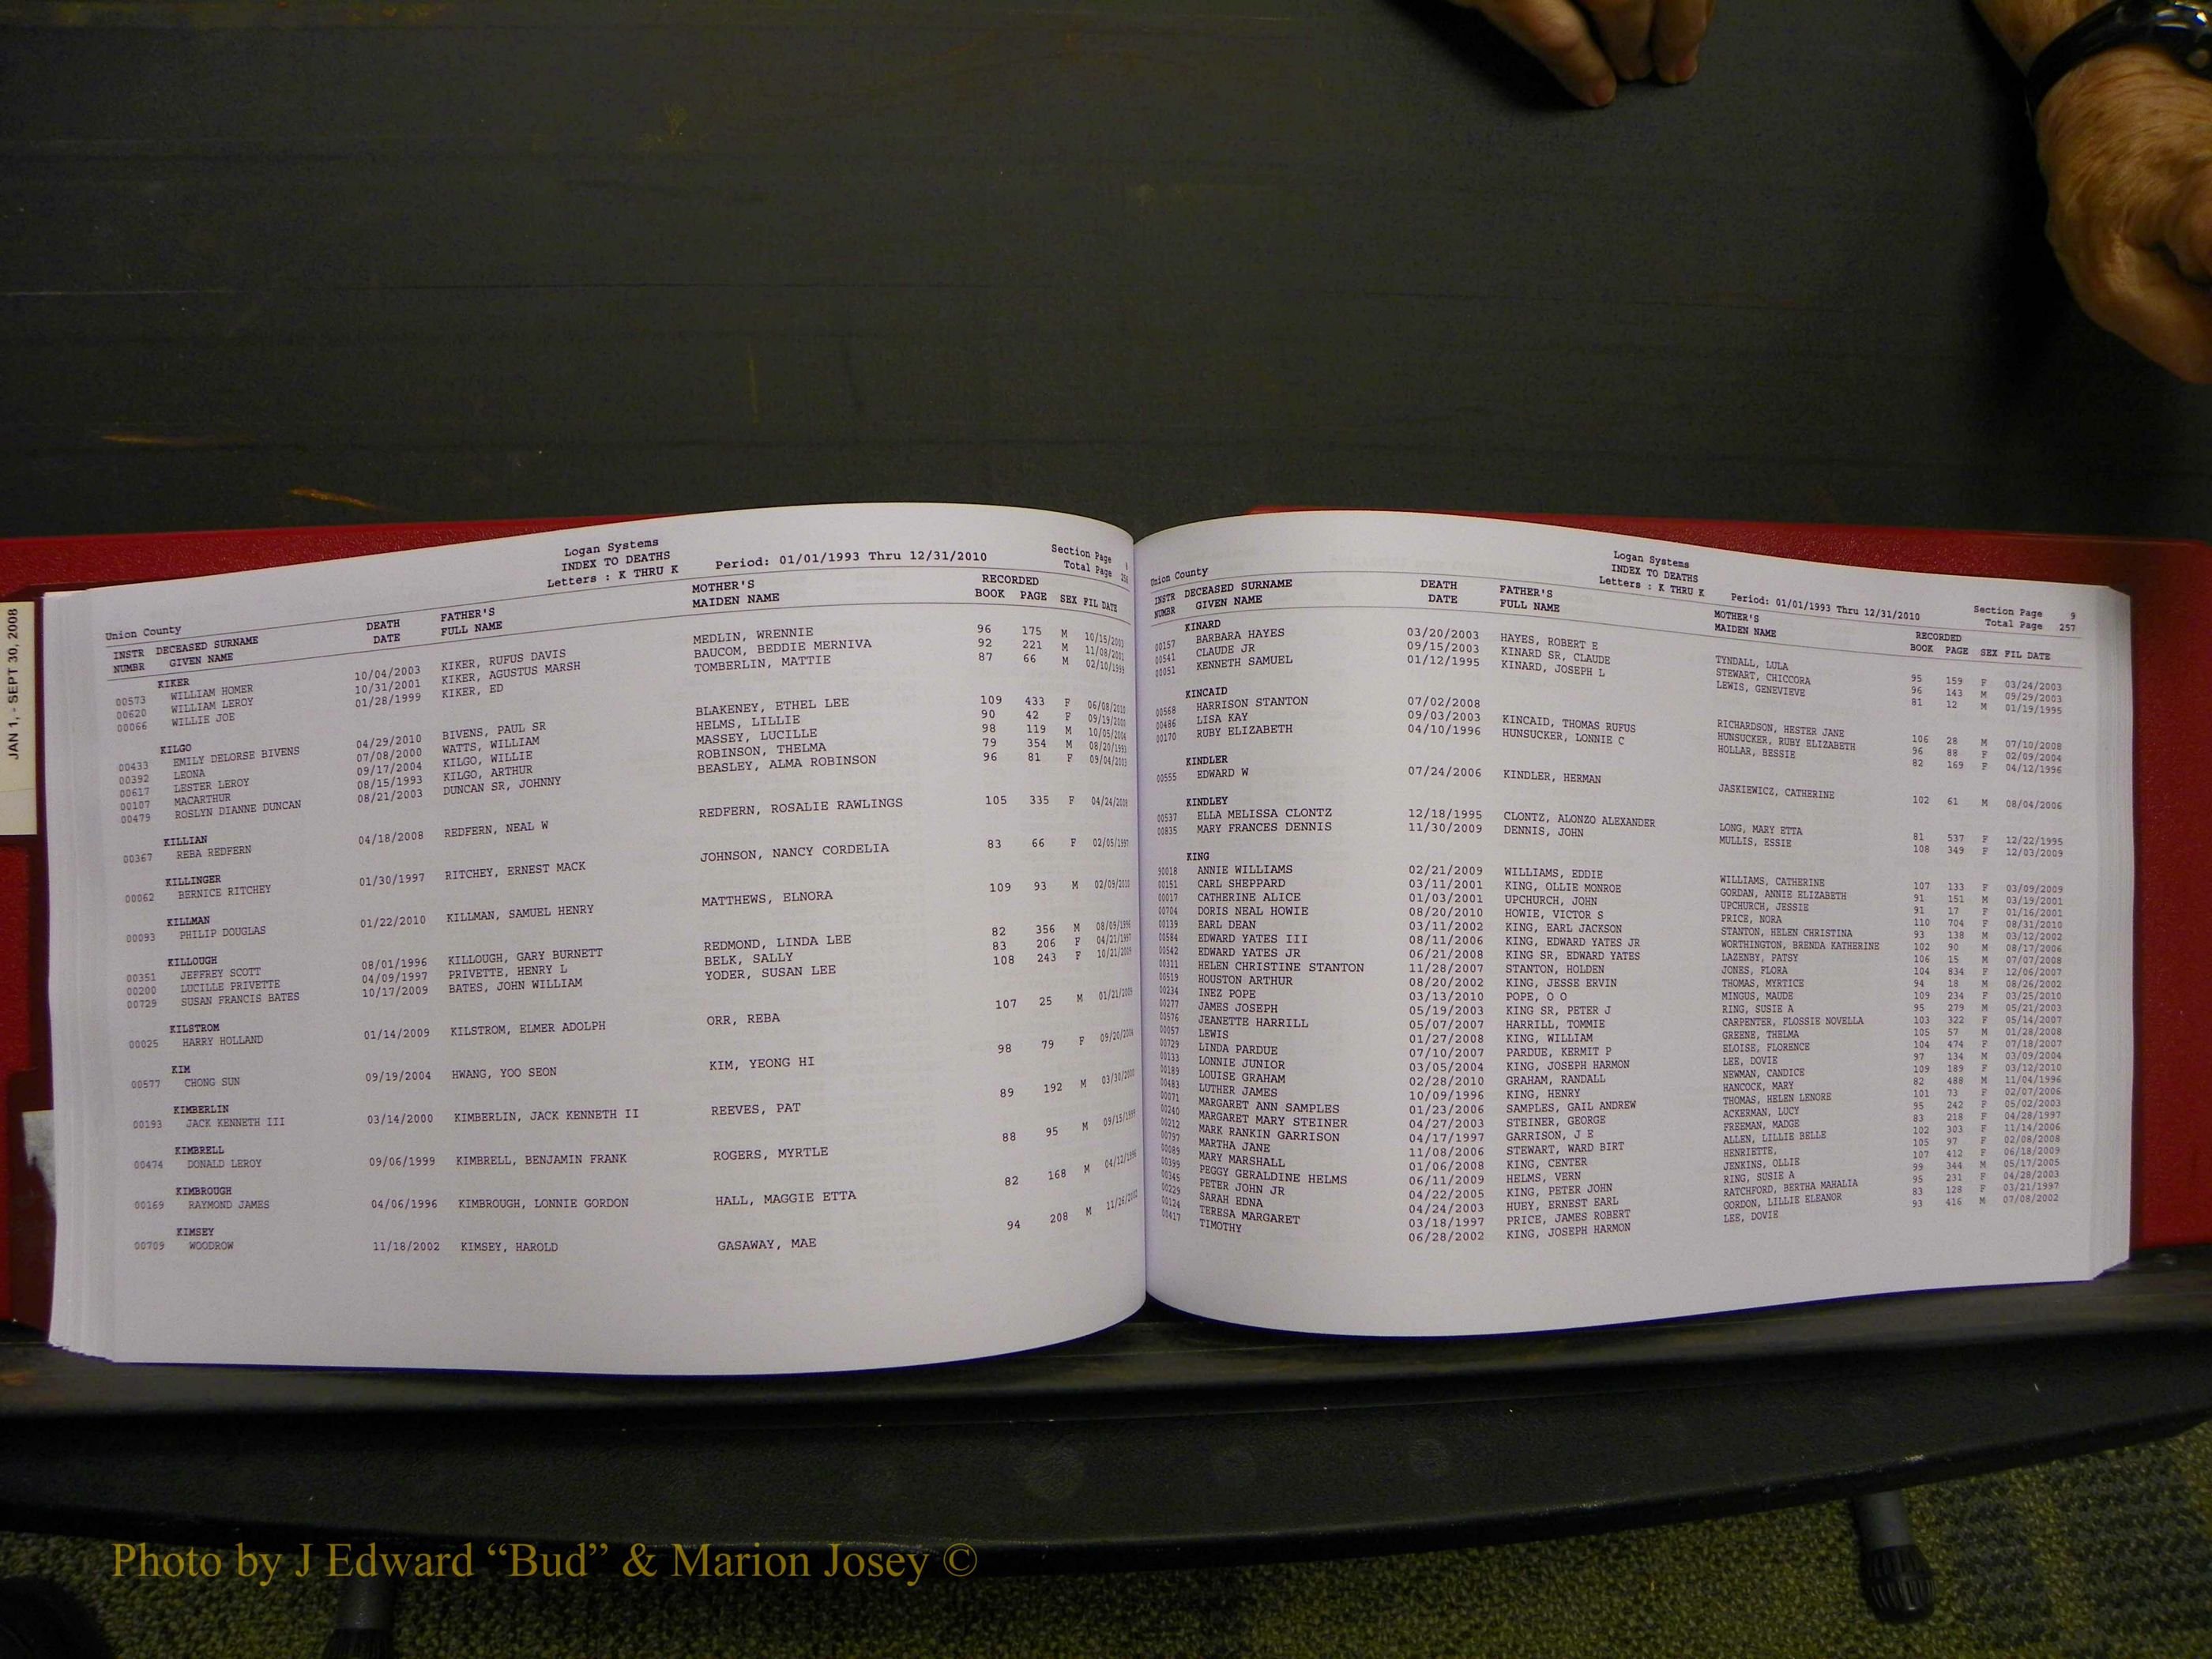 JAN 1, - SEPT 30, 2008
Logan Systems
INDEX TO DEATHS
Letters : K THRU K
Period: 01/01/1993 Thru 12/31/2010
Section Page
Total Page 256
Union County
INSTR DECEASED SURNAME DEATH FATHER'S MOTHER'S RECORDED
NUMBR GIVEN NAME DATE FULL NAME MAIDEN NAME BOOK PAGE SEX FIL DATE
KIKER
00573 WILLIAM HOMER 10/04/2003 KIKER, RUFUS DAVIS MEDLIN, WRENNIE 96 175 M 10/15/2003
00620 WILLIAM LEROY 10/31/2001 KIKER, AGUSTUS MARSH BAUCOM, BEDDIE MERNIVA 92 221 M 11/08/2001
00066 WILLIE JOE 01/28/1999 KIKER, ED TOMBERLIN, MATTIE 87 66 M 02/10/1999
KILGO
00433 EMILY DELORSE BIVENS 04/29/2010 BIVENS, PAUL SR BLAKENEY, ETHEL LEE 109 433 F 06/08/2010
00392 LEONA 07/08/2000 WATTS, WILLIAM HELMS, LILLIE 90 42 F 09/19/2000
00617 LESTER LEROY 09/17/2004 KILGO, WILLIE MASSEY, LUCILLE 98 119 M 10/05/2004
00107 MACARTHUR 08/15/1993 KILGO, ARTHUR ROBINSON, THELMA 79 354 M 08/20/1993
00479 ROSLYN DIANNE DUNCAN 08/21/2003 DUNCAN SR, JOHNNY BEASLEY, ALMA ROBINSON 96 81 F 09/04/2003
KILLIAN
00367 REBA REDFERN 04/18/2008 REDFERN, NEAL W REDFERN, ROSALIE RAWLINGS 105 335 F 04/24/2008
KILLINGER
00062 BERNICE RITCHEY 01/30/1997 RITCHEY, ERNEST MACK JOHNSON, NANCY CORDELIA 83 66 F 02/05/1997
KILLMAN
00093 PHILIP DOUGLAS 01/22/2010 KILLMAN, SAMUEL HENRY MATTHEWS, ELNORA 109 93 M 02/09/2010
KILLOUGH
00351 JEFFREY SCOTT 08/01/1996 KILLOUGH, GARY BURNETT REDMOND, LINDA LEE 82 356 M 08/09/1996
00200 LUCILLE PRIVETTE 04/09/1997 PRIVETTE, HENRY L BELK, SALLY 83 206 F 04/21/1997
00729 SUSAN FRANCIS BATES 10/17/2009 BATES, JOHN WILLIAM YODER, SUSAN LEE 108 243 F 10/21/2009
KILSTROM
00025 HARRY HOLLAND 01/14/2009 KILSTROM, ELMER ADOLPH ORR, REBA 107 25 M 01/21/2009
KIM
00577 CHONG SUN 09/19/2004 HWANG, YOO SEON KIM, YEONG HI 98 79 F 09/20/2004
KIMBERLIN
00193 JACK KENNETH III 03/14/2000 KIMBERLIN, JACK KENNETH II REEVES, PAT 89 192 M 03/30/2000
KIMBRELL
00474 DONALD LEROY 09/06/1999 KIMBRELL, BENJAMIN FRANK ROGERS, MYRTLE 88 95 M 09/15/1999
KIMBROUGH
00169 RAYMOND JAMES 04/06/1996 KIMBROUGH, LONNIE GORDON HALL, MAGGIE ETTA 82 168 M 04/12/1996
KIMSEY
00709 WOODROW 11/18/2002 KIMSEY, HAROLD GASAWAY, MAE 94 208 M 11/26/2002
Logan Systems
INDEX TO DEATHS
Letters : K THRU K
Period: 01/01/1993 Thru 12/31/2010
Section Page 9
Total Page 257
Union County
INSTR DECEASED SURNAME DEATH FATHER'S MOTHER'S RECORDED
NUMBR GIVEN NAME DATE FULL NAME MAIDEN NAME BOOK PAGE SEX FIL DATE
KINARD
00157 BARBARA HAYES 03/20/2003 HAYES, ROBERT E TYNDALL, LULA 95 159 F 03/24/2003
00541 CLAUDE JR 09/15/2003 KINARD SR, CLAUDE STEWART, CHICCORA 96 143 M 09/29/2003
00051 KENNETH SAMUEL 01/12/1995 KINARD, JOSEPH L LEWIS, GENEVIEVE 81 12 M 01/19/1995
KINCAID
00568 HARRISON STANTON 07/02/2008 KINCAID, THOMAS RUFUS RICHARDSON, HESTER JANE 106 28 M 07/10/2008
00486 LISA KAY 09/03/2003 HUNSUCKER, LONNIE C HUNSUCKER, RUBY ELIZABETH 96 88 F 02/09/2004
00170 RUBY ELIZABETH 04/10/1996 HOLLAR, BESSIE 82 169 F 04/12/1996
KINDLER
00555 EDWARD W 07/24/2006 KINDLER, HERMAN JASKIEWICZ, CATHERINE 102 61 M 08/04/2006
KINDLEY
00537 ELLA MELISSA CLONTZ 12/18/1995 CLONTZ, ALONZO ALEXANDER LONG, MARY ETTA 81 537 F 12/22/1995
00835 MARY FRANCES DENNIS 11/30/2009 DENNIS, JOHN MULLIS, ESSIE 108 349 F 12/03/2009
KING
90018 ANNIE WILLIAMS 02/21/2009 WILLIAMS, EDDIE WILLIAMS, CATHERINE 107 133 F 03/09/2009
00151 CARL SHEPPARD 03/11/2001 KING, OLLIE MONROE GORDAN, ANNIE ELIZABETH 91 151 M 03/19/2001
00017 CATHERINE ALICE 01/03/2001 UPCHURCH, JOHN UPCHURCH, JESSIE 91 17 F 01/16/2001
00704 DORIS NEAL HOWIE 08/20/2010 HOWIE, VICTOR S PRICE, NORA 110 704 F 08/31/2010
00139 EARL DEAN 03/11/2002 KING, EARL JACKSON STANTON, HELEN CHRISTINA 93 138 M 03/12/2002
00584 EDWARD YATES III 08/11/2006 KING, EDWARD YATES JR WORTHINGTON, BRENDA KATHERINE 102 90 M 08/17/2006
00542 EDWARD YATES JR 06/21/2008 KING SR, EDWARD YATES LAZENBY, PATSY 106 15 M 07/07/2008
00311 HELEN CHRISTINE STANTON 11/28/2007 STANTON, HOLDEN JONES, FLORA 104 834 F 12/06/2007
00519 HOUSTON ARTHUR 08/20/2002 KING, JESSE ERVIN THOMAS, MYRTICE 94 18 M 08/26/2002
00234 INEZ POPE 03/13/2010 POPE, O O MINGUS, MAUDE 109 234 F 03/25/2010
00277 JAMES JOSEPH 05/19/2003 KING SR, PETER J RING, SUSIE A 95 279 M 05/21/2003
00576 JEANETTE HARRILL 05/07/2007 HARRILL, TOMMIE CARPENTER, FLOSSIE NOVELLA 103 322 F 05/14/2007
00057 LEWIS 01/27/2008 KING, WILLIAM GREENE, THELMA 105 57 M 01/28/2008
00729 LINDA PARDUE 07/10/2007 PARDUE, KERMIT P ELOISE, FLORENCE 104 474 F 07/18/2007
00133 LONNIE JUNIOR 03/05/2004 KING, JOSEPH HARMON LEE, DOVIE 97 134 M 03/09/2004
00189 LOUISE GRAHAM 02/28/2010 GRAHAM, RANDALL NEWMAN, CANDICE 109 189 F 03/12/2010
00483 LUTHER JAMES 10/09/1996 KING, HENRY HANCOCK, MARY 82 488 M 11/04/1996
00071 MARGARET ANN SAMPLES 01/23/2006 SAMPLES, GAIL ANDREW THOMAS, HELEN LENORE 101 73 F 02/07/2006
00240 MARGARET MARY STEINER 04/27/2003 STEINER, GEORGE ACKERMAN, LUCY 95 242 F 05/02/2003
00212 MARK RANKIN GARRISON 04/17/1997 GARRISON, J E FREEMAN, MADGE 83 218 F 04/28/1997
00797 MARTHA JANE 11/08/2006 STEWART, WARD BIRT ALLEN, LILLIE BELLE 102 303 F 11/14/2006
00089 MARY MARSHALL 01/06/2008 KING, CENTER HENRIETTE, 105 97 F 02/08/2008
00399 PEGGY GERALDINE HELMS 06/11/2009 HELMS, VERN JENKINS, OLLIE 107 412 F 06/18/2009
00345 PETER JOHN JR 04/22/2005 KING, PETER JOHN RING, SUSIE A 99 344 M 05/17/2005
00229 SARAH EDNA 04/24/2003 HUEY, ERNEST EARL RATCHFORD, BERTHA MAHALIA 95 231 F 04/28/2003
00124 TERESA MARGARET 03/18/1997 PRICE, JAMES ROBERT GORDON, LILLIE ELEANOR 83 128 F 03/21/1997
00417 TIMOTHY 06/28/2002 KING, JOSEPH HARMON LEE, DOVIE 93 416 M 07/08/2002
Photo by J Edward “Bud” & Marion Josey ©